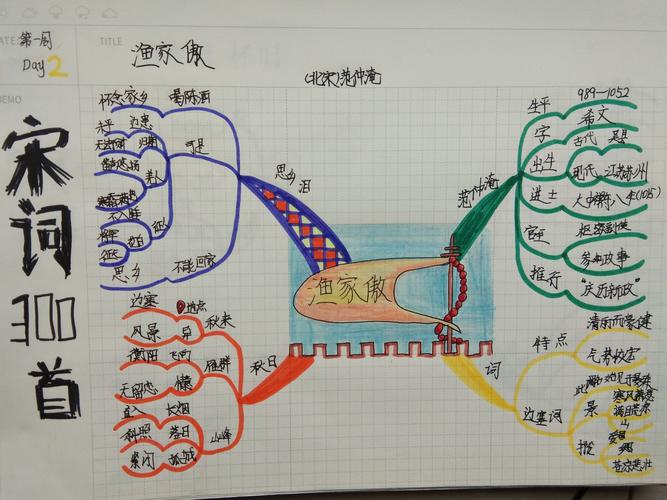 第一周
Day 2
TITLE
渔家傲
(北宋)范仲淹
宋词300首
渔家傲
思乡泪
怀念家乡
喝陈酒
可是
未平
边患
归期
美人
不入睡
征人
将军
思乡
不能回家
范仲淹
生平
989—1052
字
希文
出生
古代
吴县
现代
江苏苏州
进士
大中祥符八年(1015)
官至
枢密副使
参知政事
推行
"庆历新政"
秋日
边塞
地点
秋来
风景
异
衡阳
飞向
雁群
无留恋
直入
长烟
山峰
斜照
落日
紧闭
孤城
词
特点
清丽而豪健
气势恢宏
边塞词
景
寒风萧瑟
满目荒凉
苍凉悲壮